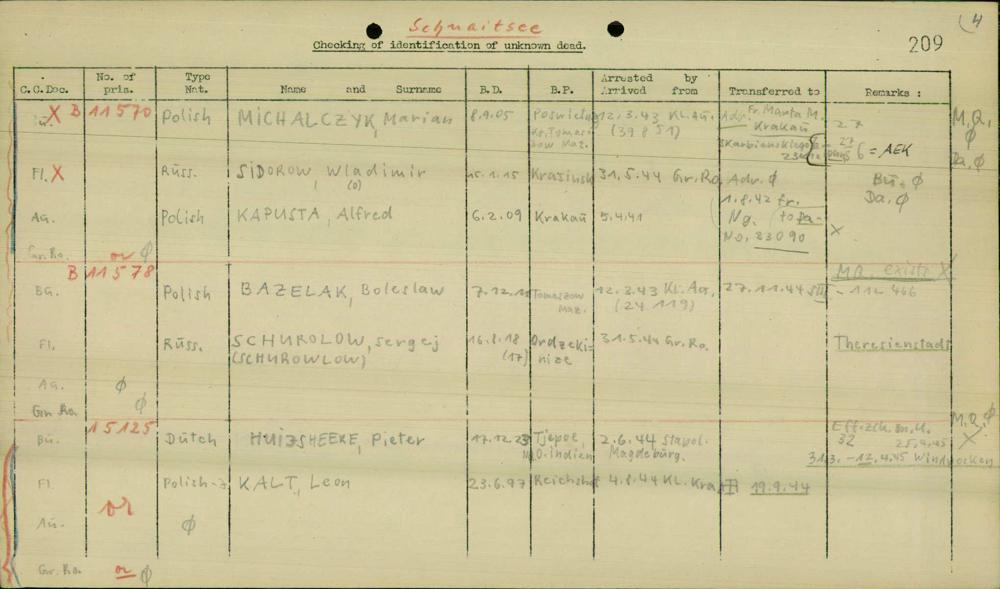 Schnaitsee
4
Checking of identification of unknown dead.
209
C.C.Doc. No. of pris. Type Nat. Name and Surname B.D. B.P. Arrested by Arrived from Transferred to Remarks :
X B 11570 Polish MICHALCZYK, Marian 8.9.05 12.3.43 KL. Au. (39851) Adr. Fr. Marta M. Krakau 27 M.Q. φ
Skarbienskiego 27 6 = AEK Da, φ
Fl. X Russ. SIDOROW, Wladimir (o) 15.1.15 Krasinsk 31.5.44 Gr. Ro. Adr. φ Bu, φ Da, φ
Au. Polish KAPUSTA, Alfred 6.2.09 Krakau 5.4.41 1.8.42 fr. Ng. to Da- No. 23090 X
Gr. Ro. or φ
B 11578 M.Q. exists X
Bu. Polish BAZELAK, Boleslaw Tomaszow Maz. 12.3.43 KL. Au. (24119) 27.11.44 SIII - 112 466
Fl. Russ. SCHUROLOW, Sergej (SCHUROWLOW) 16.8.18 (17) Ordzekinize 31.5.44 Gr. Ro. Theresienstadt
Au. φ
Gr. Ro. φ
15125 M.Q. φ X
Bu. Dutch HUIZSHEEKE, Pieter 17.12.23 Tjepoe, N.O.-Indien 2.6.44 Stapol. Magdeburg. 32 25.4.45
31.3. - 12.4.45 Windpocken
Fl. or Polish-J. KALT, Leon 23.6.97 Reichshof 4.8.44 KL. Kra III 19.9.44
Au. φ
Gr. Ro. or φ